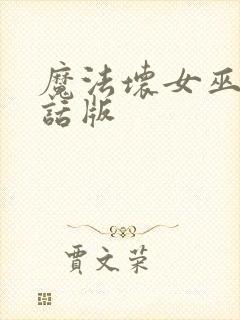 魔法壞女巫
話版
賈文荣